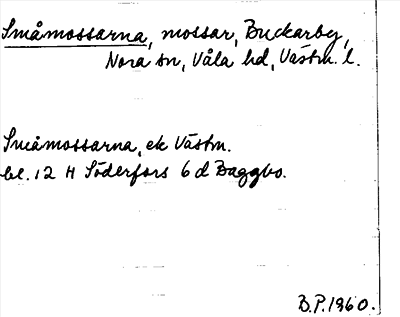 Småmossarna, mossar, Buckarby,
Nora sn, Våla hd, Västm. l.
Småmossarna, ek Västm.
bl. 12 H Söderfors 6 d Daggbo.
B.P. 1960.